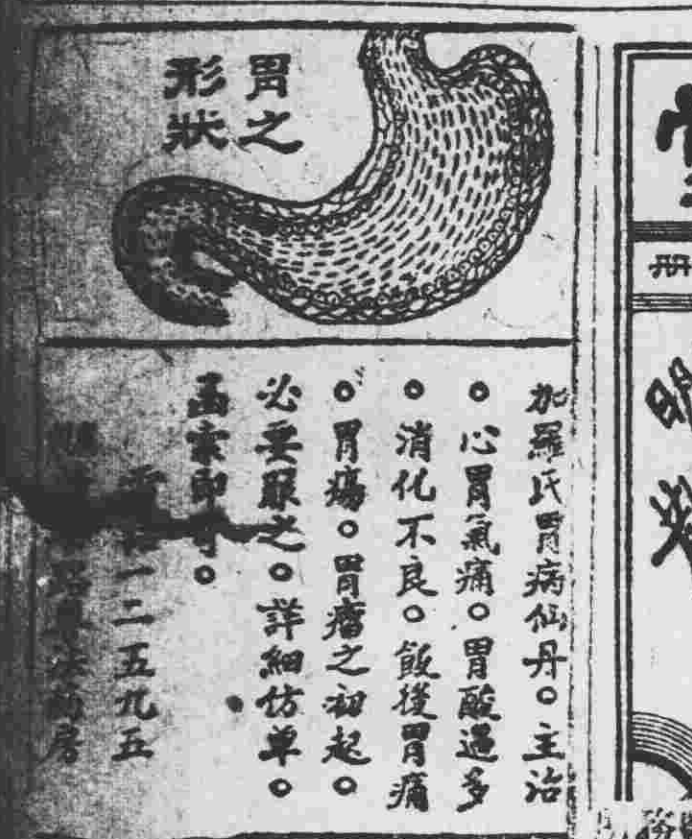 胃之
形狀
加羅氏胃病仙丹。主治
。心胃氣痛。胃酸過多
。消化不良。飯後胃痛
。胃瘍。胃癌之初起。
必要服之。詳細仿单。
函索即寄。
電話一二五九五
药房
册
明